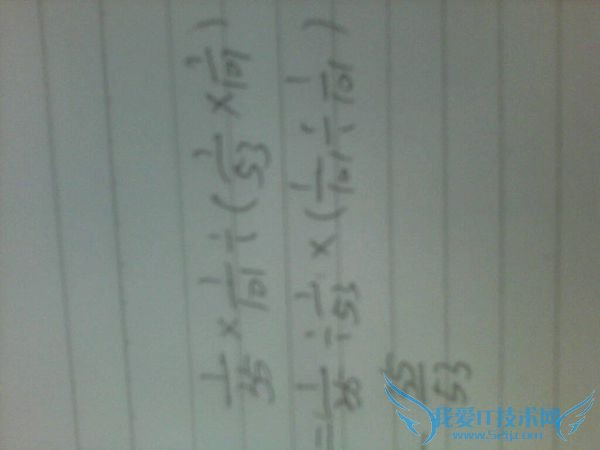 1/35 × 1/101 ÷ (1/53 × 1/101)
= 1/35 ÷ 1/53 × (1/101 ÷ 1/101)
35/53
我爱IT技术网
www.52ij.com